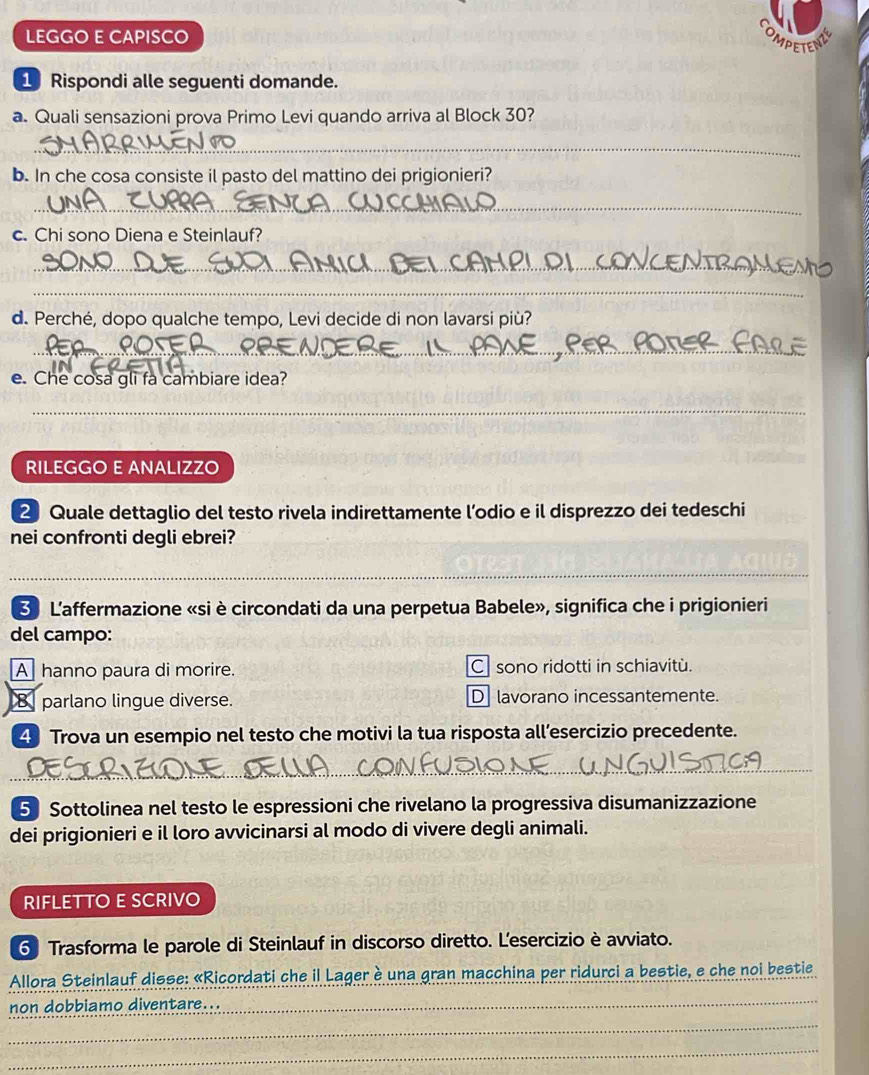 LEGGO E CAPISCO
COMPETENZE
1 Rispondi alle seguenti domande.
a. Quali sensazioni prova Primo Levi quando arriva al Block 30?
SMARRIMENTO
b. In che cosa consiste il pasto del mattino dei prigionieri?
UNA ZUPPA SENZA CUCCHIAIO
c. Chi sono Diena e Steinlauf?
SONO DUE SUOI AMICI DEI CAMPI DI CONCENTRAMENTO
d. Perché, dopo qualche tempo, Levi decide di non lavarsi più?
PER POTER PRENDERE IL PANE, PER POTER FARE
IN FRETTA
e. Che cosa gli fa cambiare idea?
RILEGGO E ANALIZZO
2 Quale dettaglio del testo rivela indirettamente l'odio e il disprezzo dei tedeschi
nei confronti degli ebrei?
3 L'affermazione «si è circondati da una perpetua Babele», significa che i prigionieri
del campo:
A hanno paura di morire.
C sono ridotti in schiavitù.
B parlano lingue diverse.
D lavorano incessantemente.
4 Trova un esempio nel testo che motivi la tua risposta all'esercizio precedente.
DESCRIZIONE DELLA CONFUSIONE LINGUISTICA
5 Sottolinea nel testo le espressioni che rivelano la progressiva disumanizzazione
dei prigionieri e il loro avvicinarsi al modo di vivere degli animali.
RIFLETTO E SCRIVO
6 Trasforma le parole di Steinlauf in discorso diretto. L'esercizio è avviato.
Allora Steinlauf disse: «Ricordati che il Lager è una gran macchina per ridurci a bestie, e che noi bestie
non dobbiamo diventare...